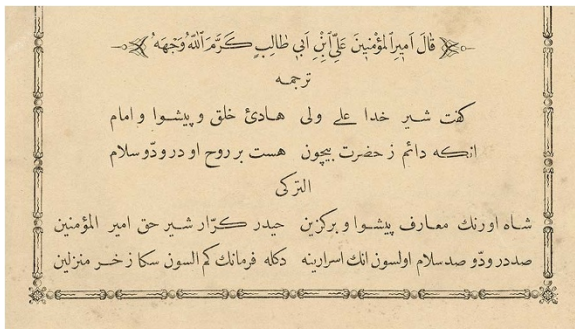 قَالَ اَمِيرُ المُؤْمِنِينَ عَلِىِّ ابْنِ اَبِى طَالِبٍ كَرَّمَ اللّٰهُ وَجْهَهُ
ترجمه
كفت شير خدا على ولى هادئ خلق و پيشوا و امام
انكه دائم ز حضرت بيچون هست بر روح او درود و سلام
التركى
شاه اورنك معارف پيشوا و بركزين حيدر كرّار شير حق امير المؤمنين
صد درود و صد سلام اولسون انك اسرارينه دكله فرمانك كم السون سكا زخر منزلين